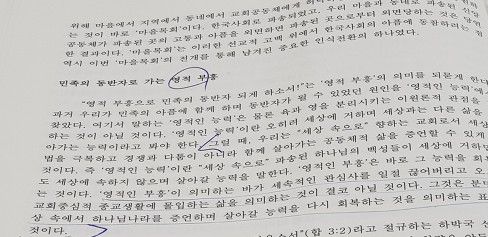 위해 마을에서 지역에서 동네에서 교회공동체에게
는 것이 바로 '마을목회'다. 한국사회로 파송되었고, 우리 마을과 동네로 파송된
공동체가 파송된 곳의 고통과 아픔을 외면하면 파송된 곳으로부터 외면당하는 것은 당연
한 결과이다. '마을목회'는 이러한 선교적 고백 위에서 한국사회의 아픔에 동참하려는
역시 이번 '마을목회'의 전개를 통해 남겨진 중요한 인식전환의 하나였다.
민족의 동반자로 가는 영적 부흥
"영적 부흥으로 민족의 동반자 되게 하소서!"는 '영적 부흥'의 의미를 되묻게 한다
과거 우리가 민족의 아픔에 함께 하며 동반자가 될 수 있었던 원인을 '영적인 능력'에
찾았다. 여기서 말하는 '영적인 능력'은 물론 육과 영을 분리시키는 이원론적 관점을
하는 것이 아닐 것이다. '영적인 능력'이란 오히려 세상에 거하며 세상과는 다른 삶을
아가는 능력이라고 봐야 한다. 그럴 때, 우리는 "세상 속으로" 향하는 교회로서 세상
법을 극복하고 경쟁과 다툼이 아니라 함께 살아가는 공동체적 삶을 증언할 수 있게
것이다. 즉 '영적인 능력'이란 "세상 속으로" 파송된 하나님의 백성들이 세상에 거하면
도 세상에 속하지 않으며 살아갈 능력을 말한다. '영적인 부흥'은 바로 그 능력을 회
는 것이다. '영적인 부흥'이 의미하는 바가 세속적인 관심사를 일절 끊어버리고 오
교회중심적 종교생활에 몰입하는 삶을 의미하는 것이 결코 아닐 것이다. 그것은 분
상 속에서 하나님나라를 증언하며 살아갈 능력을 다시 회복하는 것을 의미하는 표
것이다.
(합 3:2)라고 절규하는 하박국 선